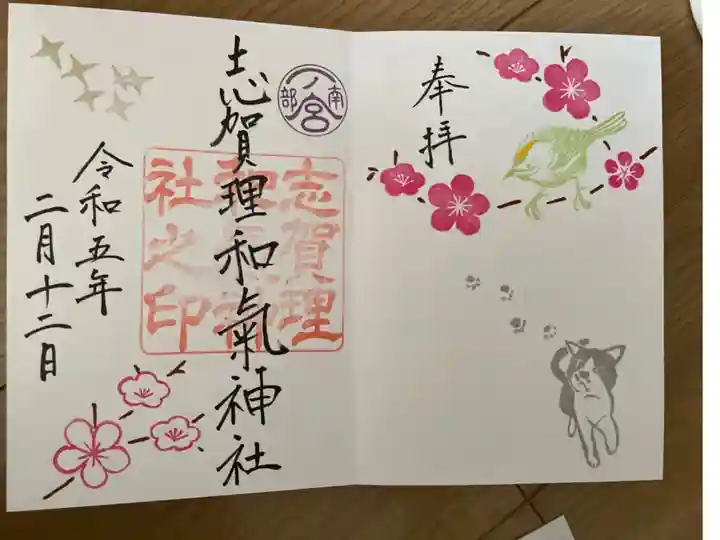 奉拝
南部
一ノ宮
志賀理和氣神社
志賀理
和氣神
社之印
令和五年
二月十二日